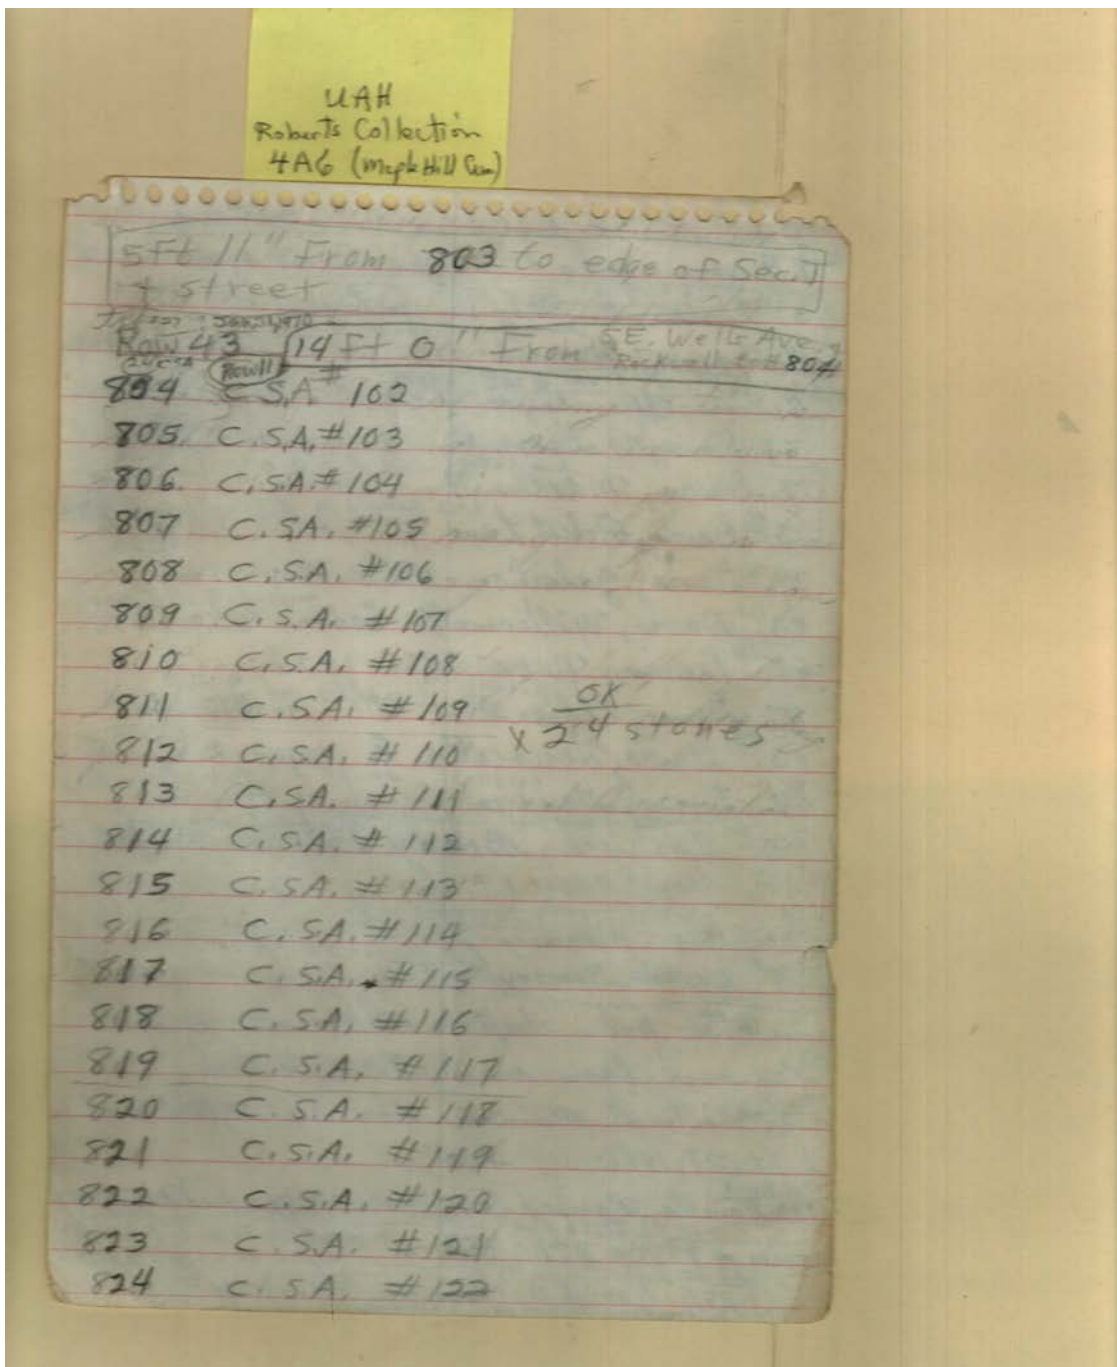 UAH
Roberts Collection
4A6 (Maple Hill Cem)
5Ft 11" From 803 to edge of Sec. I
+ street
Row 43 14 Ft 0" From S.E. Wells Ave. &
Row 11 Rockwell 804
804 C.S.A # 102
805. C.S.A. #103
806. C.S.A. # 104
807 C.S.A. #105
808 C.S.A. #106
809 C.S.A. #107
810 C.S.A. #108
811 C.S.A. #109
OK
X 24 stones
812 C.S.A. # 110
813 C.S.A. # 111
814 C.S.A. # 112
815 C.S.A. # 113
816 C.S.A. # 114
817 C.S.A. # 115
818 C.S.A. #116
819 C.S.A. #117
820 C.S.A. #118
821 C.S.A. #119
822 C.S.A. #120
823 C.S.A. #121
824 C.S.A. #122